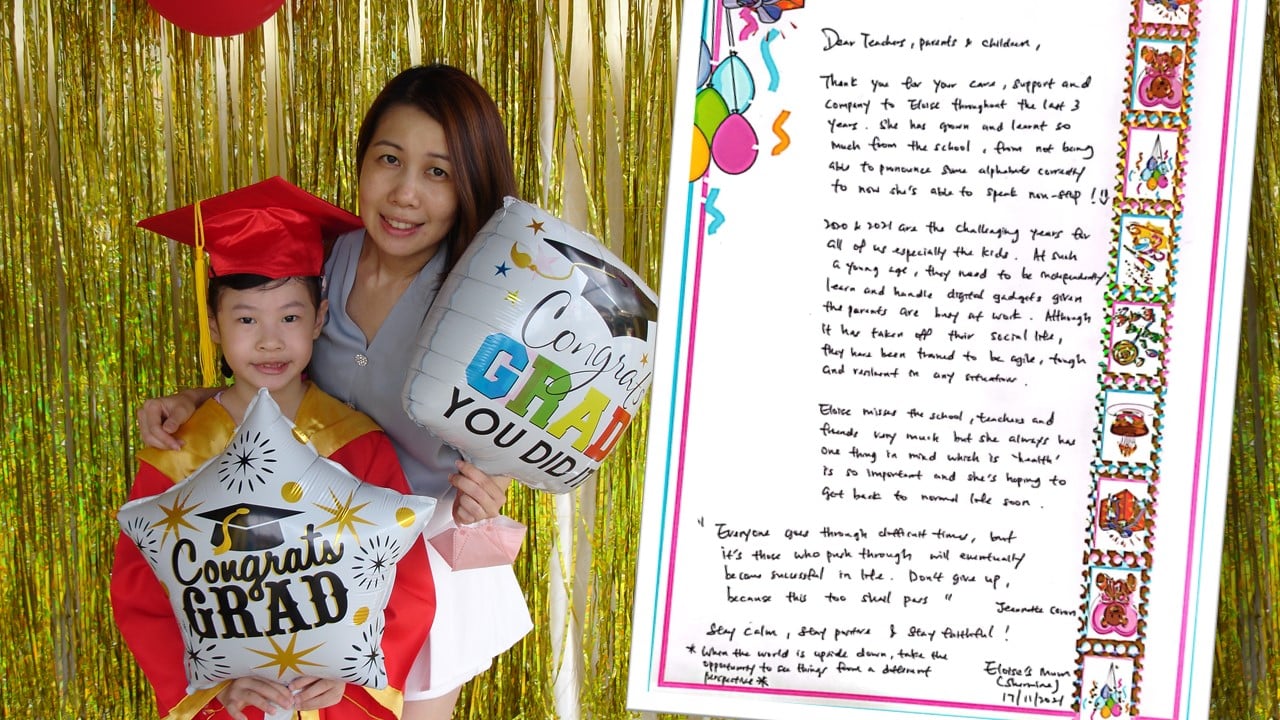 Congrats
GRAD
Congrats
GRAD
YOU DID IT
Dear Teachers, parents & children,
Thank you for your care, support and
company to Eloise throughout the last 3
years. She has grown and learnt so
much from the school, from not being
able to pronounce some alphabets correctly
to now she's able to speak non-stop! :)
2020 & 2021 are the challenging years for
all of us especially the kids. At such
a young age, they need to be independently
learn and handle digital gadgets given
the parents are busy at work. Although
it has taken off their social life,
they have been trained to be agile, tough
and resilient in any situations.
Eloise misses the school, teachers and
friends very much but she always has
one thing in mind which is 'health'
is so important and she's hoping to
get back to normal life soon.
"Everyone goes through difficult times, but
it's those who push through will eventually
become successful in life. Don't give up,
because this too shall pass"
Jeannette
Stay calm, stay positive & stay faithful!
*When the world is upside down, take the
opportunity to see things from a different
perspective*
Eloise's Mum
17/11/2021